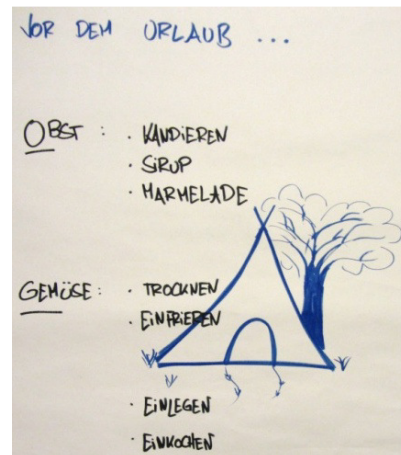 VOR DEM URLAUB ...
OBST : · KANDIEREN
· SIRUP
· MARMELADE
GEMÜSE : · TROCKNEN
· EINFRIEREN
· EINLEGEN
· EINKOCHEN